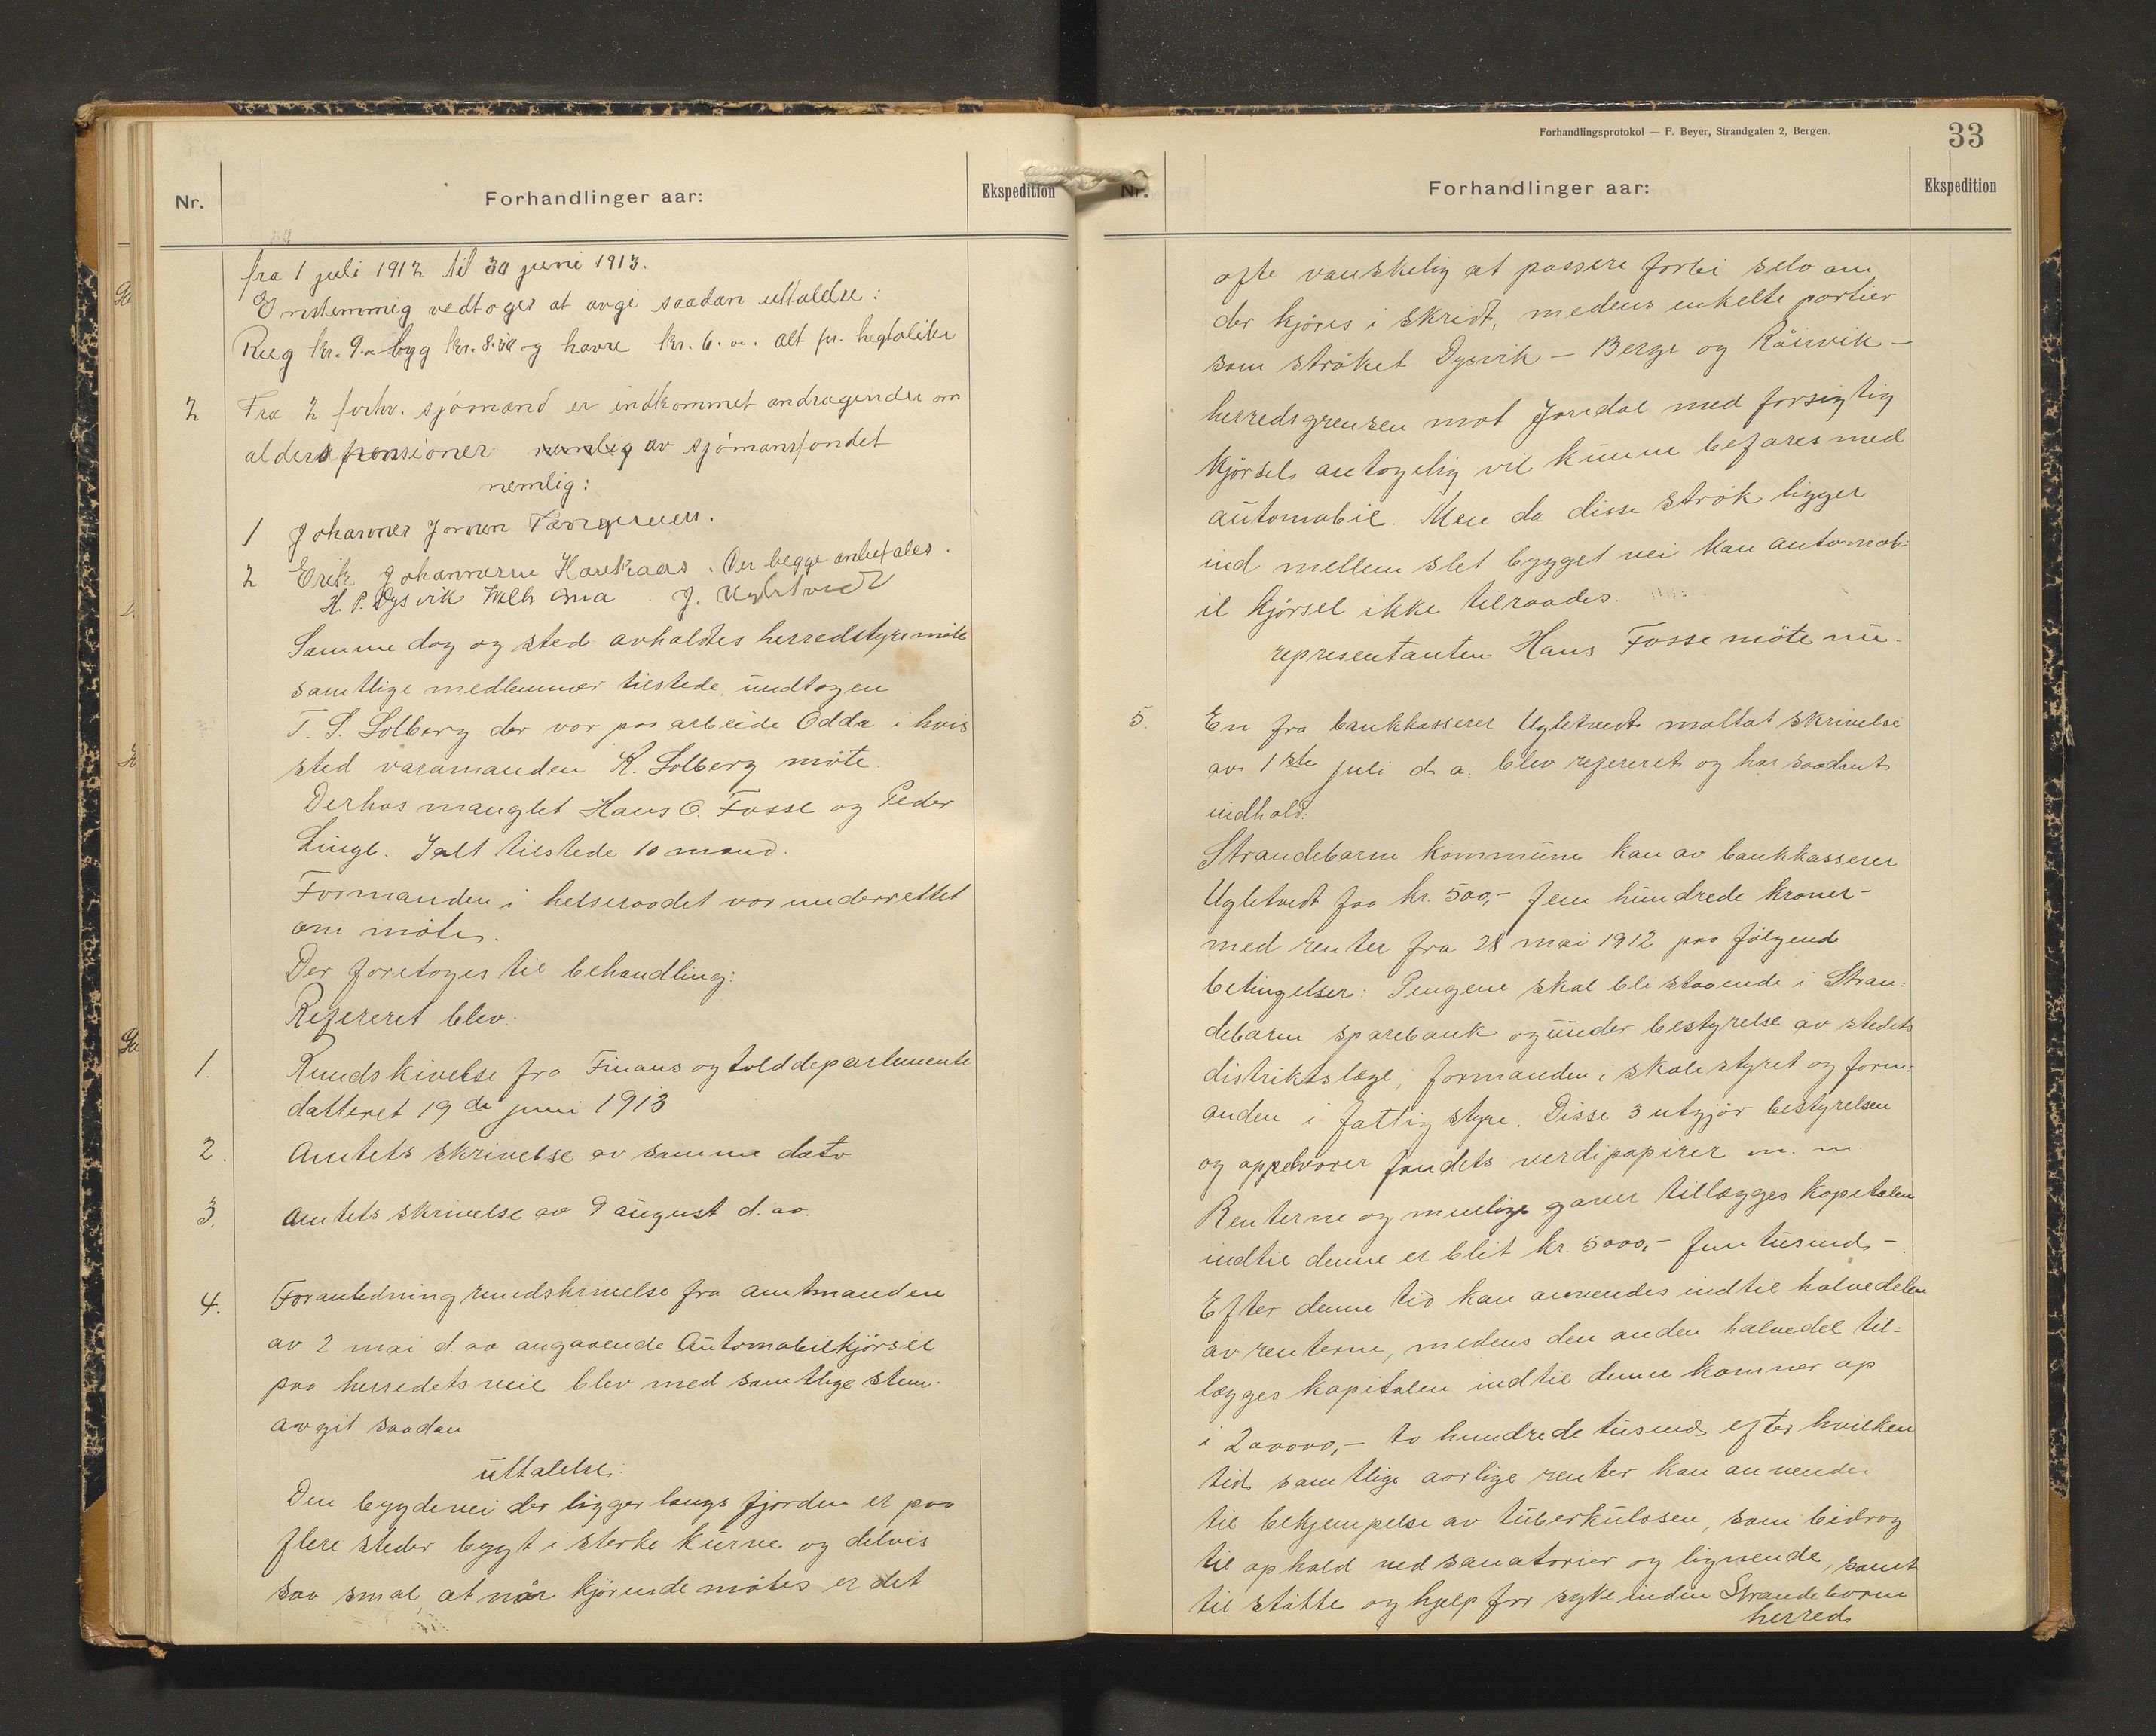 Nr.
Forhandlinger aar:
Ekspedition
fra 1 juli 1912 til 30 juni 1913.
Enstemmig vedtoges at avgi saadan uttalelse:
Rug kr. 9.00 byg kr. 8.50 og havre kr. 6.00. alt pr. hegtoliter
2 Fra 2 forhv. sjömænd er indkommet andragender om
alderspensioner nemlig av sjömansfondet
nemlig:
1 Johannes Jonsen
2 Erik Johannesen Haukaas. Der begge anbefales.
H. P. Dysvik J. Ugletvedt
Samme dag og sted avholdtes herredstyremöte
samtlige medlemmer tilstede undtagen
T. S. Solberg der var paa arbeide Odda i hvis
sted varamanden K. Solberg möte.
Derhos manglet Hans O. Fosse og Peder
Linge. Ialt tilstede 10 mand.
Formanden i helseraadet var underrettet
om mötes.
Der foretoges til behandling:
Refereret blev:
1. Rundskivelse fra Finans og tolddepartemente
datteret 19de juni 1913
2. Amtets skrivelse av samme dato
3. Amtets skrivelse av 9 august d. aa.
4. Foranledning rundskrivelse fra amtmanden
av 2 mai d. aa angaaende Automobilkjörsel
paa herredets veie blev med samtlige stem.
avgit saadan
uttalelse:
Den bygdevei der ligger langs fjorden er paa
flere steder bygt i sterke kurve og delvis
saa smal, at når kjörende mötes er det
Forhandlingsprotokol — F. Beyer, Strandgaten 2, Bergen.
33
Nr.
Forhandlinger aar:
Ekspedition
ofte vanskelig at passere forbi selv om
der kjöres i skridt, medens enkelte partier
som ströket Dysvik – Berge og Råirvik –
herredsgrensen mot Jondal med forsigtig
kjörsel antagelig vil kunne befares med
automobil. Men da disse strök ligger
ind mellem slet bygget vei kan automob-
il kjörsel ikke tilraades.
representanten Hans Fosse möte nu.
5. En fra bankkasserer Ugletvedt mottat skrivelse
av 1ste juli d. a. blev refereret og har saadant
indhold:
Strandebarm kommune kan av bankkasserer
Ugletvedt faa kr. 500,- fem hundrede kroner -
med renter fra 28 mai 1912 paa fölgende
betingelser: Pengene skal bli staaende i Stran-
debarm sparebank og under bestyrelse av stedets
distriktslæge, formanden i skolestyret og form-
anden i fattigstyre. Disse 3 utgjör bestyrelsen
og oppebvarer fondets verdipapirer m. m.
Renterne og mulige gaver tillægges kapitalen
indtil denne er blit kr. 5000,- fem tusind -.
Efter denne tid kan anvendes indtil halvedelen
av renterne, medens den anden halvedel til-
lægges kapitalen indtil denne kommer op
i 200000,- to hundrede tusind, efter hvilken
tid samtlige aarlige renter kan anvendes
til bekjempelse av tuberkulosen, som bidrag
til ophold ved sanatorier og lignende, samt
til stötte og hjelp for syke inden Strandebarm
herred